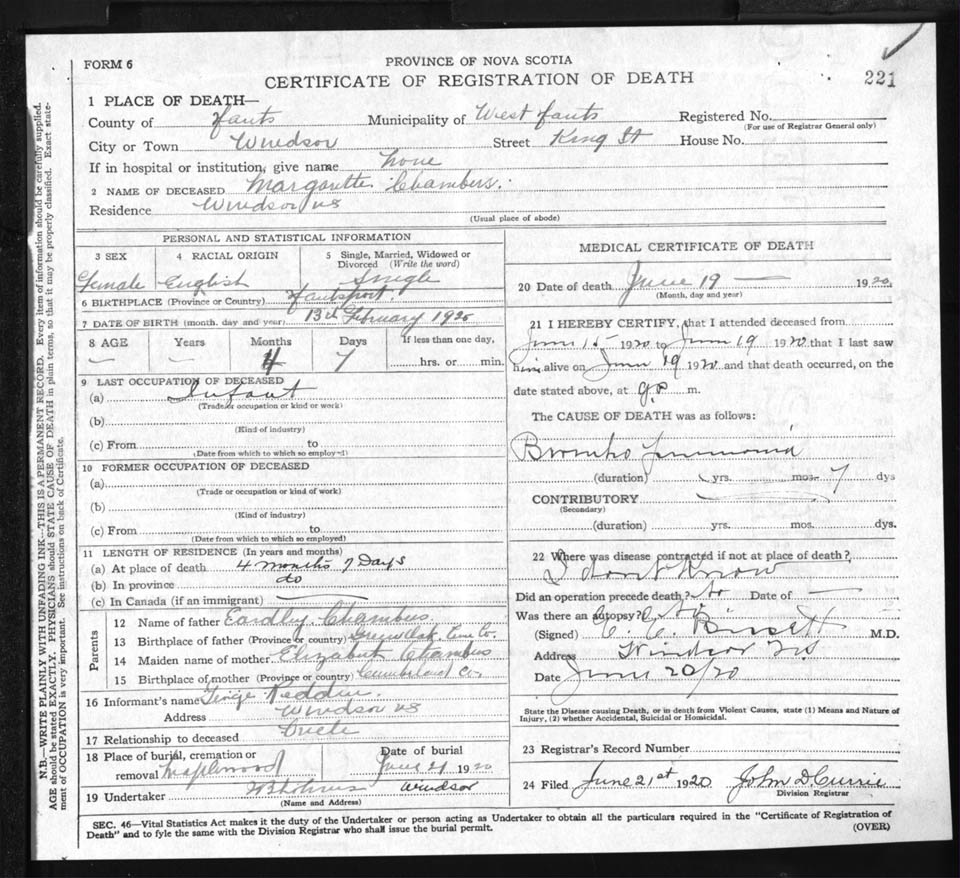 FORM 6
PROVINCE OF NOVA SCOTIA
CERTIFICATE OF REGISTRATION OF DEATH
221
1 PLACE OF DEATH—
County of Hants Municipality of West Hants Registered No.
(For use of Registrar General only)
City or Town Windsor Street King St House No.
If in hospital or institution, give name none
2 NAME OF DECEASED Chambers.
Residence Windsor NS
(Usual place of abode)
PERSONAL AND STATISTICAL INFORMATION
3 SEX 4 RACIAL ORIGIN 5 Single, Married, Widowed or
Divorced (Write the word)
Female English Single
6 BIRTHPLACE (Province or Country) Hantsport
7 DATE OF BIRTH (month, day and year) 13th February 1920
8 AGE Years Months Days If less than one day,
— — 4 7 hrs. or min.
9 LAST OCCUPATION OF DECEASED
(a) Infant
(Trade or occupation or kind or work)
(b)
(Kind of industry)
(c) From to
(Date from which to which so employed)
10 FORMER OCCUPATION OF DECEASED
(a)
(Trade or occupation or kind of work)
(b)
(Kind of industry)
(c) From to
(Date from which to which so employed)
11 LENGTH OF RESIDENCE (In years and months)
(a) At place of death 4 months 7 Days
(b) In province do
(c) In Canada (if an immigrant) —
Parents
12 Name of father Eardly Chambers.
13 Birthplace of father (Province or country) Green Oak, Co.
14 Maiden name of mother Elizabeth Chambers
15 Birthplace of mother (Province or country) Cumberland Co.
16 Informant's name Reddin.
Address Windsor NS
17 Relationship to deceased Uncle
18 Place of burial, cremation or Date of burial
removal Maplewood June 21 1920
19 Undertaker Windsor
(Name and Address)
MEDICAL CERTIFICATE OF DEATH
20 Date of death June 19 — 1920.
(Month, day and year)
21 I HEREBY CERTIFY, that I attended deceased from
June 15 1920 to June 19 1920 that I last saw
him alive on June 19 1920 and that death occurred, on the
date stated above, at m.
The CAUSE OF DEATH was as follows:
Broncho Pneumonia
(duration) yrs. mos. 7 dys
CONTRIBUTORY
(Secondary)
(duration) yrs. mos. dys.
22 Where was disease contracted if not at place of death?
I dont know
Did an operation precede death? No Date of —
Was there an autopsy? No
(Signed) M.D.
Address Windsor NS
Date June 20/20
State the Disease causing Death, or in death from Violent Causes, state (1) Means and Nature of
Injury, (2) whether Accidental, Suicidal or Homicidal.
23 Registrar's Record Number
24 Filed June 21st 1920 John D Currie
Division Registrar
SEC. 46—Vital Statistics Act makes it the duty of the Undertaker or person acting as Undertaker to obtain all the particulars required in the "Certificate of Registration of
Death" and to fyle the same with the Division Registrar who shall issue the burial permit.
(OVER)
N.B.—WRITE PLAINLY WITH UNFADING INK—THIS IS A PERMANENT RECORD. Every item of information should be carefully supplied.
AGE should be stated EXACTLY. PHYSICIANS should STATE CAUSE OF DEATH in plain terms, so that it may be properly classified. Exact state-
ment of OCCUPATION is very important. See instructions on back of Certificate.